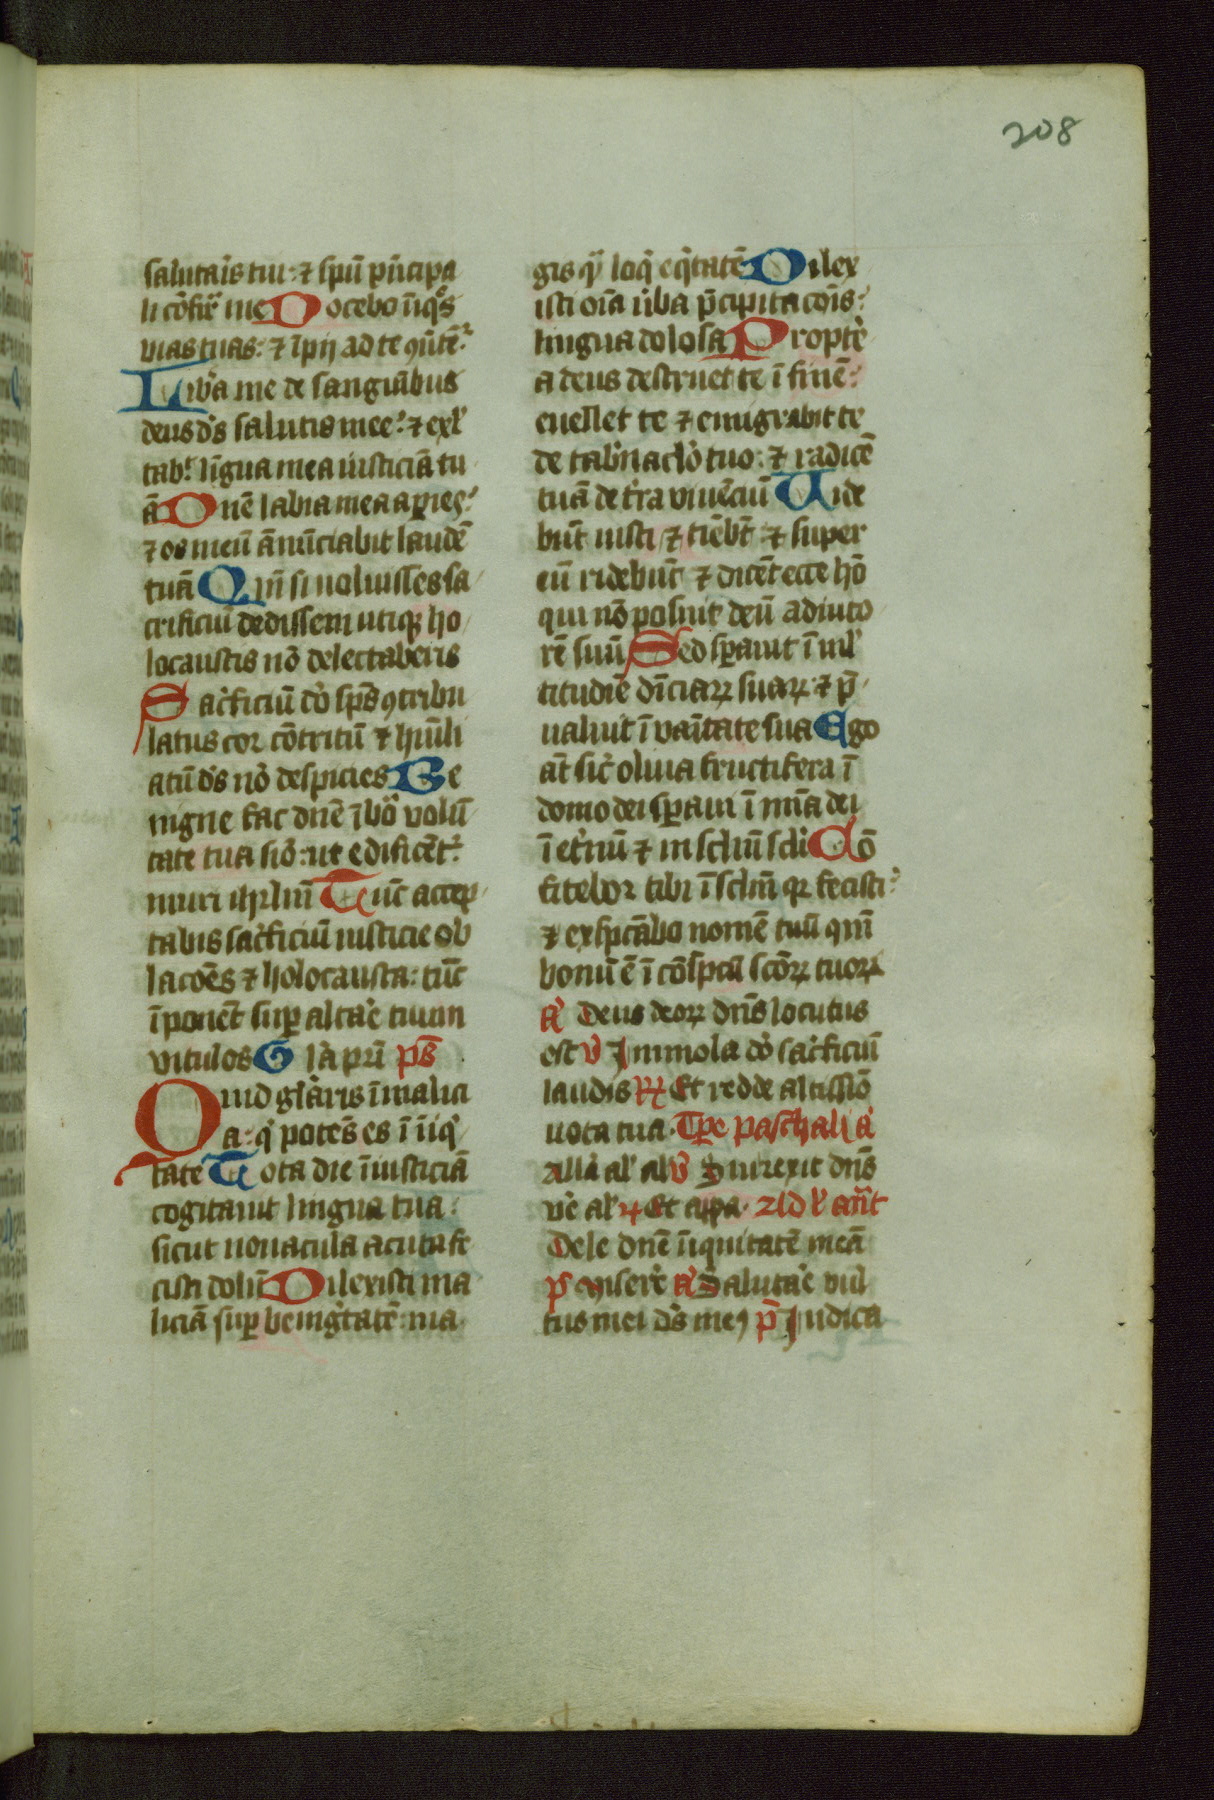 208
salutaīs tui: ⁊ spū pͥncipa
li cōfirͣ me Docebo īiqͦs
vias tuas: ⁊ īpij ad te ꝯūtēr
Liba me de sanguībus
deus dˀs salutis mee: ⁊ exl
tabͭ lingua mea iusticiā tu
ā Dnē labia mea apies:
⁊ os meū ānūciabit laudē
tuā Qm̄ si voluisses sa
crificiū dedissem utiqꝫ ho
locaustis nō delectaberis
Sacͥficiū dō spūs ꝯtribu
latus cor cōtritū ⁊ hūili
atū dˀs nō despicies Be
nigne fac dnē ī bō volū
tate tua siō: ut edificētͬ
muri ihrlm̄ Tūc accep
tabis sacͥficiū iusticie ob
lacōes ⁊ holocausta: tūc
īponēt suꝑ altaͬe tuum
vitulos Glͣa pri ps̄
Quid glͣaris ī malici
a: qͥ potēs es ī iiqͥ
tate Tota die īiusticiā
cogitauit lingua tua:
sicut nouacula acuta fe
cisti dolū Dilexisti ma
liciā suꝑ benigͥtatē: ma
gis qͣ loqͥ eqͥtatē Dilex
isti oīa v̄ba p̄cipitacōis:
lingua dolosa Propte
a deus destruet te ī finē:
euellet te ⁊ emigrabit te
de tabͬnaclō tuo: ⁊ radicē
tuā de tͬra viuēciū Vide
būt iusti ⁊ tiēbt̄ ⁊ super
eū ridebūt ⁊ dicēt ecce hō
qui nō posuit deū adiuto
rē suū Sed sꝑauit ī ml
titudīe diuiciaꝝ suaꝝ: ⁊ p̄
ualuit ī vaītate sua Ego
āt sic̄ oliua fructifera ī
domo dei sꝑaui ī mīa dei
ī etͬnū ⁊ in sclm̄ scli Cō
fitebor tibi ī sclm̄ qꝛ fecisti:
⁊ exspcābo nomē tuū qm̄
bonū ē ī cōspcū scōꝝ tuoꝝ
aͣ Deus deoꝝ dn̄s locutus
est v̄ Immola dō sacͥficiū
laudis ꝶ Et redde altissīo
uota tua. Tp̄e paschali aͣ
Allͣa al' al v̄ Surrexit dn̄s
ve al' ꝶ Et appa.
Dele dnē iiquitatē meā
pˢ Miserͤ aͣ Salutaͬe vul
tus mei dˀs meꝰ p̄ Iudica